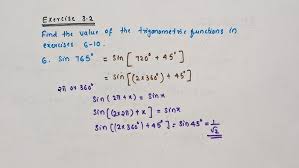 Exercise 3.2
Find the value of the trigonometric functions in
exercises 6-10.
6. Sin 765° = Sin [720° + 45°]
= Sin [(2×360°) + 45°]
2π or 360°
Sin (2π + x) = Sin x
Sin [(2×2π) + x] = Sin x
Sin [(2×360°) + 45°] = Sin 45° = 1/√2